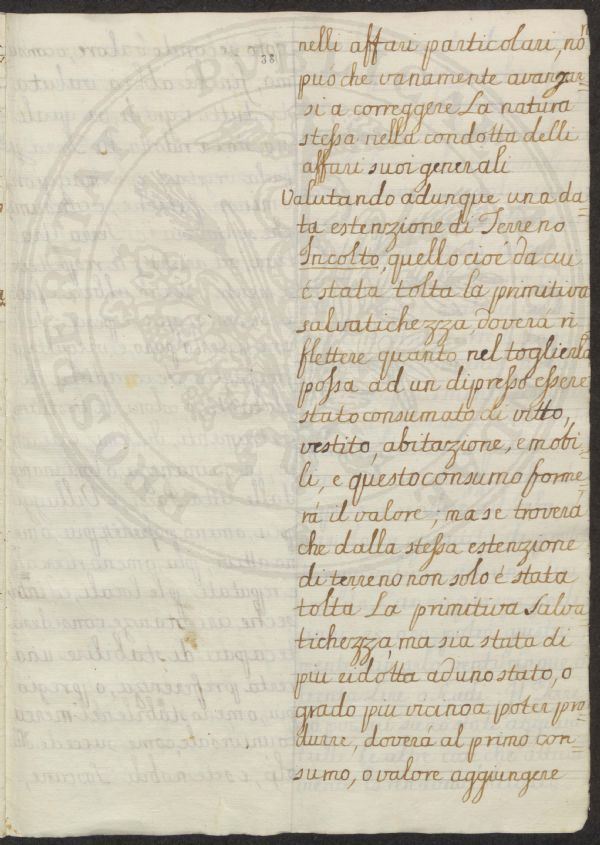 38
nelli affari particolari, nõ
può che vanamente avanzar
si a correggere La natura
stessa nella condotta delli
affari suoi generali
Valutando adunque una da=
ta estenzione di Terreno
Incolto, quello cioè da cui
è stata tolta la primitiva
salvatichezza doverá ri
flettere quanto nel toglierla
possa ad un dipresso essere
stato consumato di vitto,
vestito, abitazione, e mobi=
li, e questo consumo forme
rá il valore; ma se troverá
che dalla stessa estenzione
di terreno non solo é stata
tolta La primitiva salva
tichezza, ma sia stata di
più ridotta ad uno stato, o
grado piu vicino a poter pro
durre, doverá al primo con=
sumo, o valore aggiungere